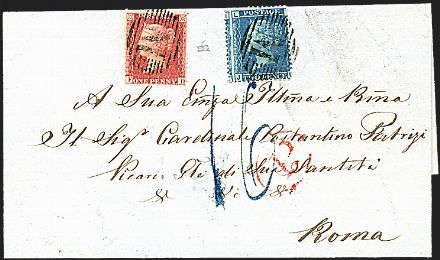 POSTAGE
ONE PENNY
A Sua Emza Illma e Rma
Il Sigr Cardinale Costantino Patrizi
Vicari Gle di Sua Santità
& &c &
Roma